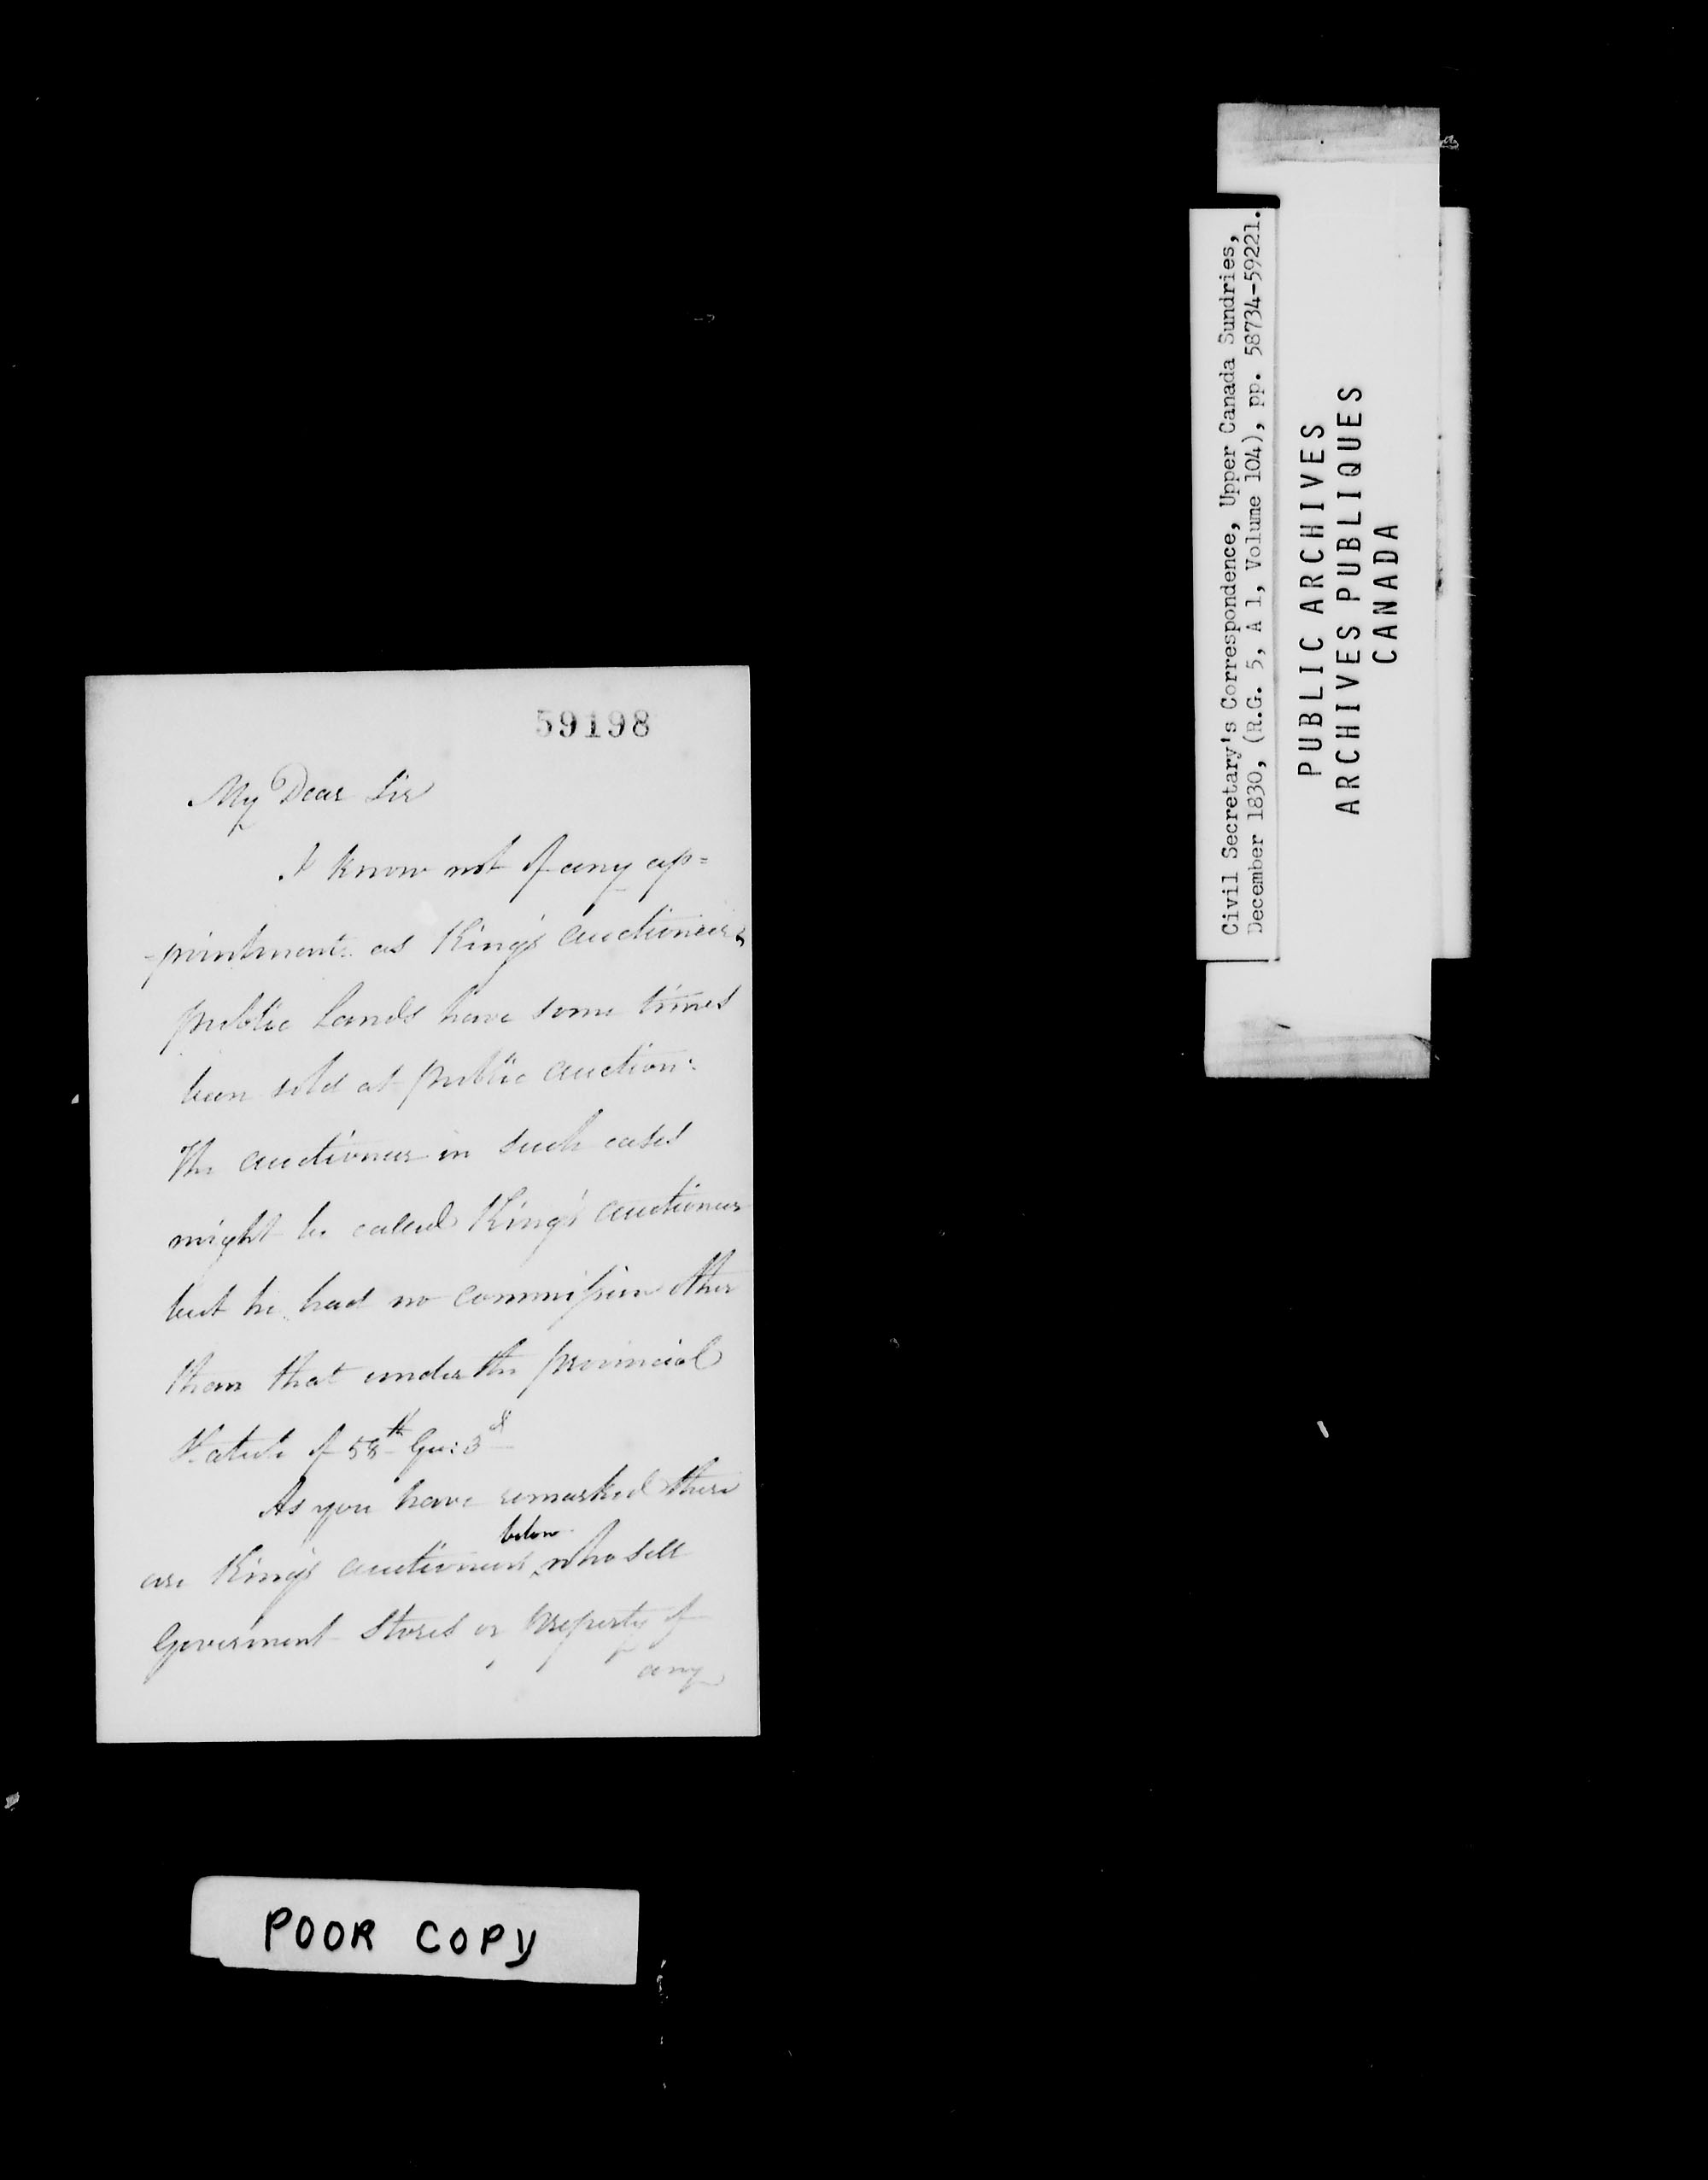 59198
My Dear Sir
I know not of any ap=
-pointment as King's auctioneer,
public Lands have some times
been sold at public auction:
The auctioneer in such cases
might be called King's auctioneer
but he had no commission other
than that under the provincial
Statute of 58th Geo: 3d
As you have remarked there
below
are King's auctioneers who sell
Government Stores or property of
any
POOR COPY
Civil Secretary's Correspondence, Upper Canada Sundries,
December 1830, (R.G. 5, A 1, Volume 104), pp. 58734-59221.
PUBLIC ARCHIVES
ARCHIVES PUBLIQUES
CANADA